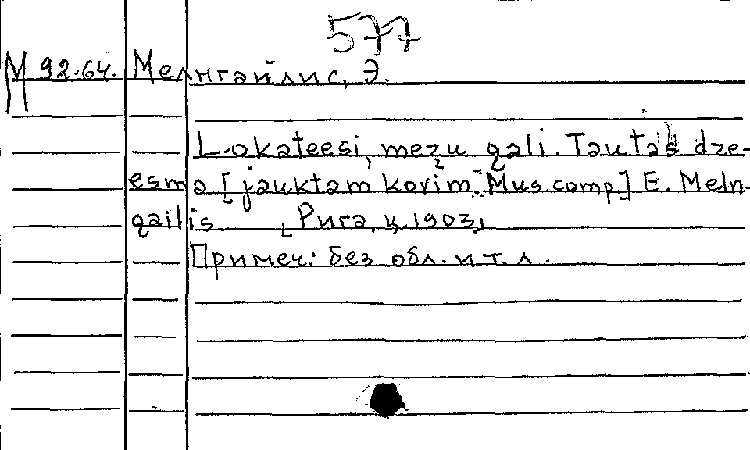 577
М 92.64. Мелнгайлис, Э.
Lokateesi, mezu gali. Tautas dze-
esma [jauktam korim. Mus.comp.] E. Meln-
gailis [Рига, ц. 1903]
Примеч.: без обл. и т. л.